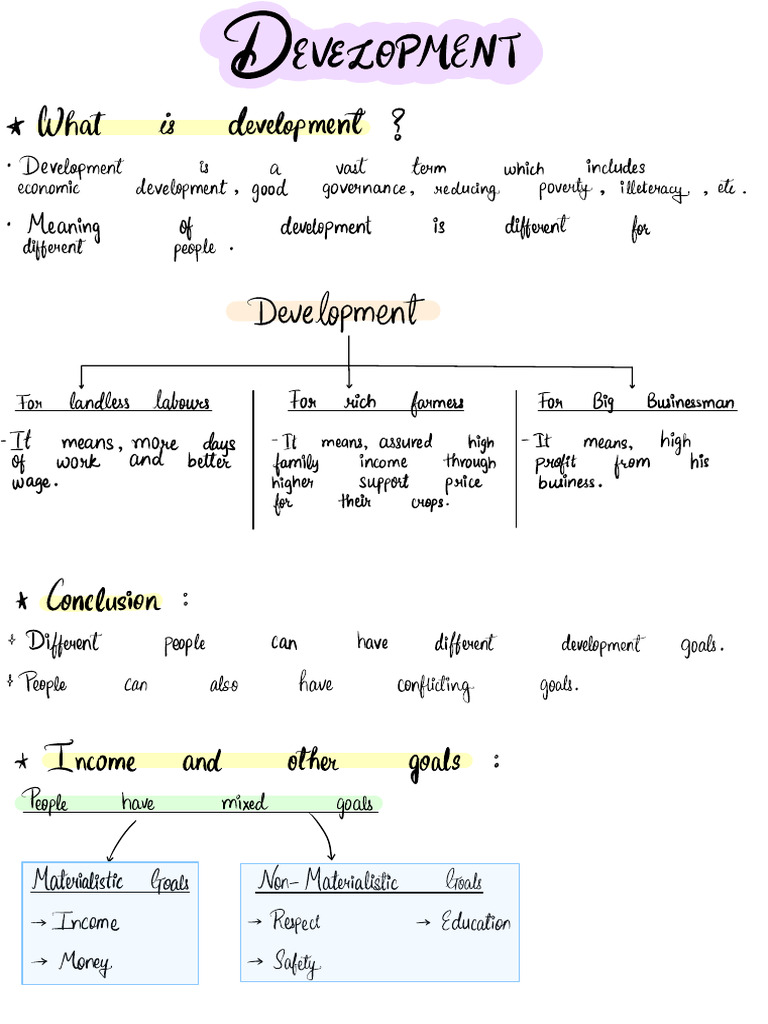 DEVELOPMENT
★ What is development ?
· Development is a vast term which includes
economic development, good governance, reducing poverty, illeteracy, etc.
· Meaning of development is different for
different people.
Development
For landless labours
- It means, more days
of work and better
wage.
For rich farmers
- It means, assured high
family income through
higher support price
for their crops.
For Big Businessman
- It means, high
profit from his
business.
★ Conclusion :
✧ Different people can have different development goals.
✧ People can also have conflicting goals.
★ Income and other goals :
People have mixed goals
Materialistic Goals
→ Income
→ Money
Non-Materialistic Goals
→ Respect → Education
→ Safety